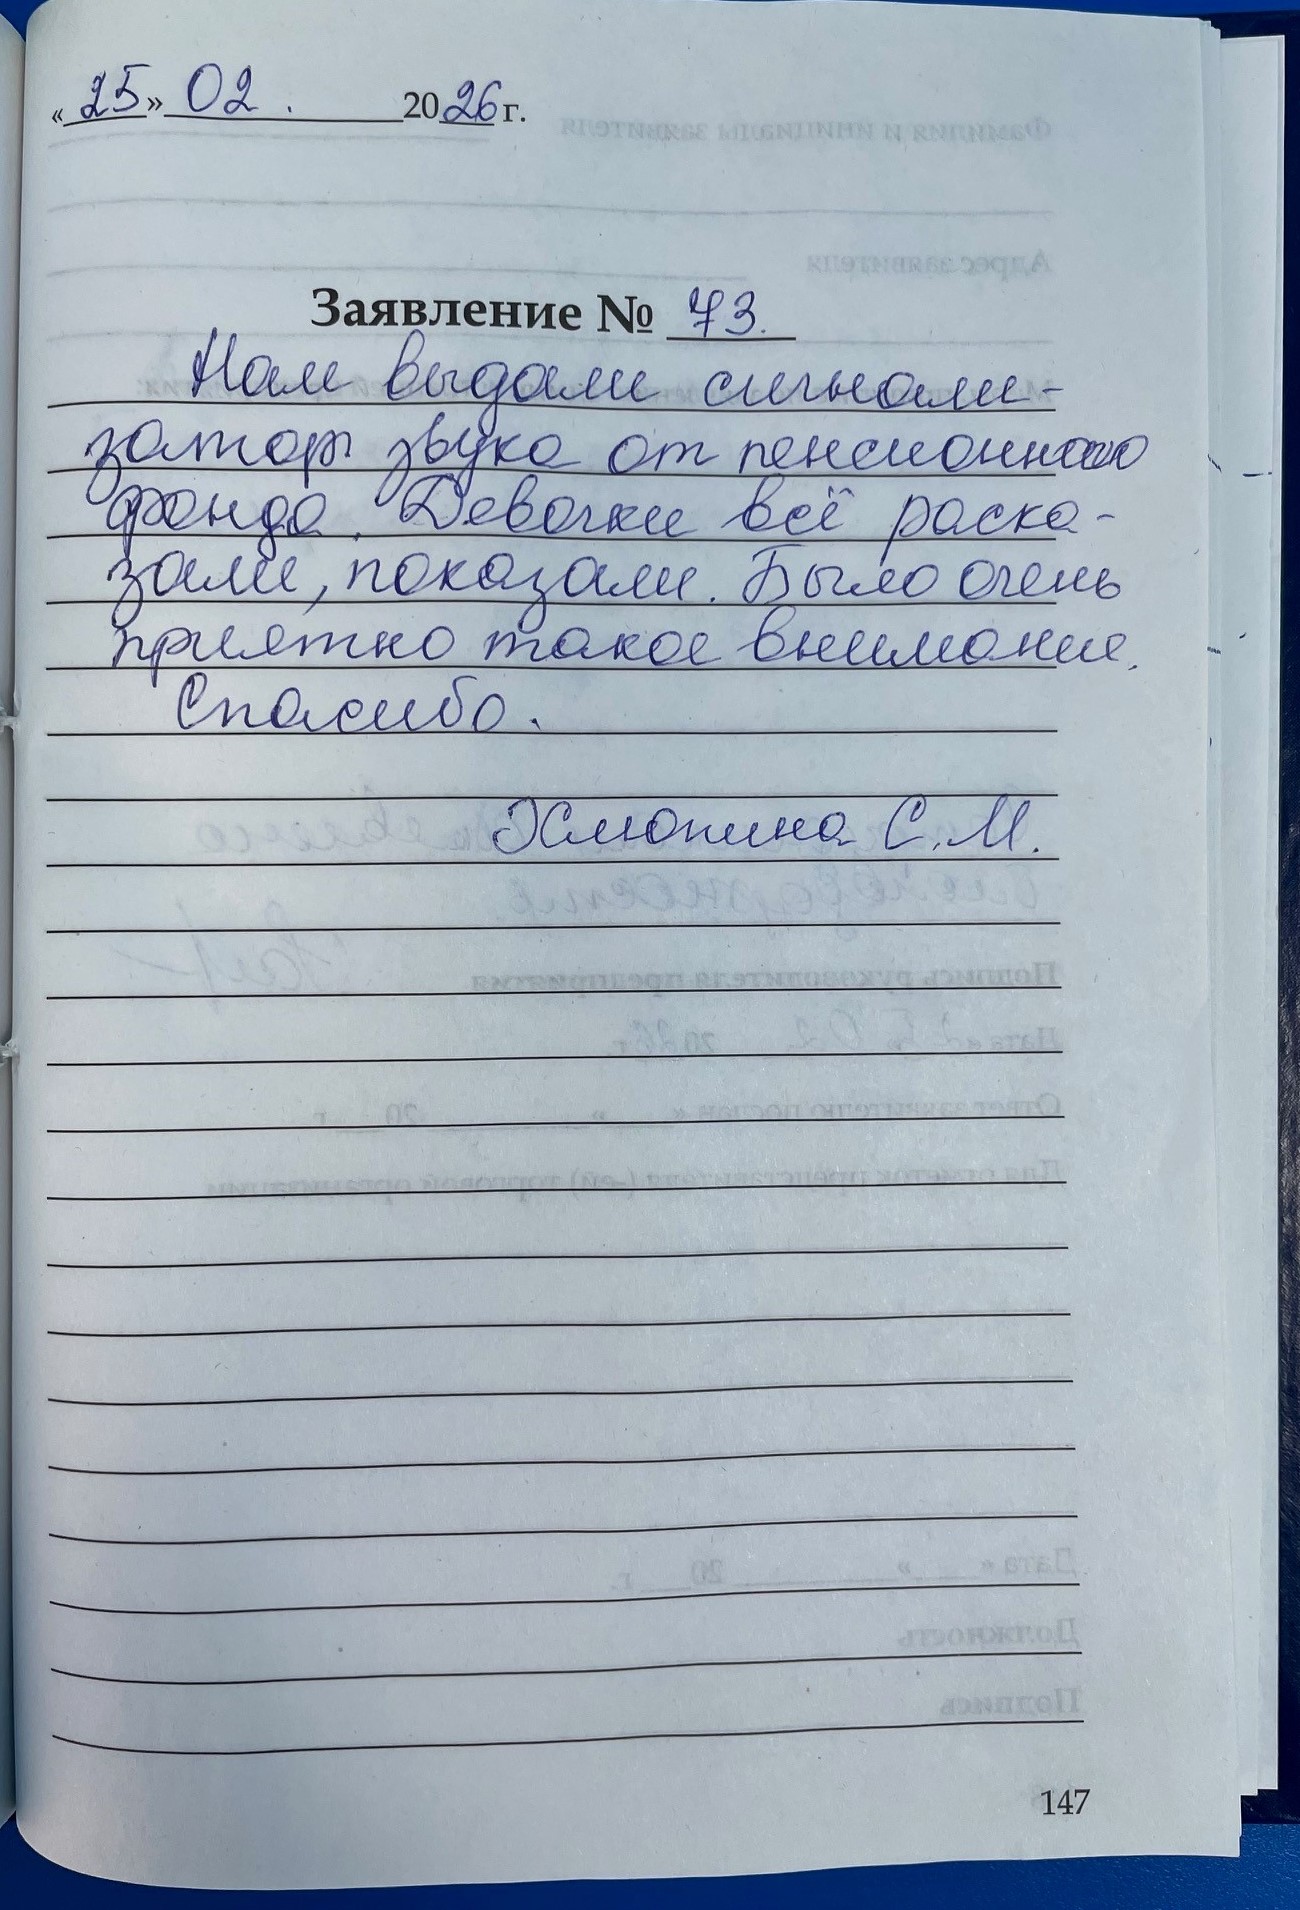 «25» 02. 2026 г.
Заявление № 73.
Нам выдали сигнали-
затор звука от пенсионного
фонда. Девочки всё раска-
зали, показали. Было очень
приятно такое внимание.
Спасибо.
Хлюпина С.М.
147